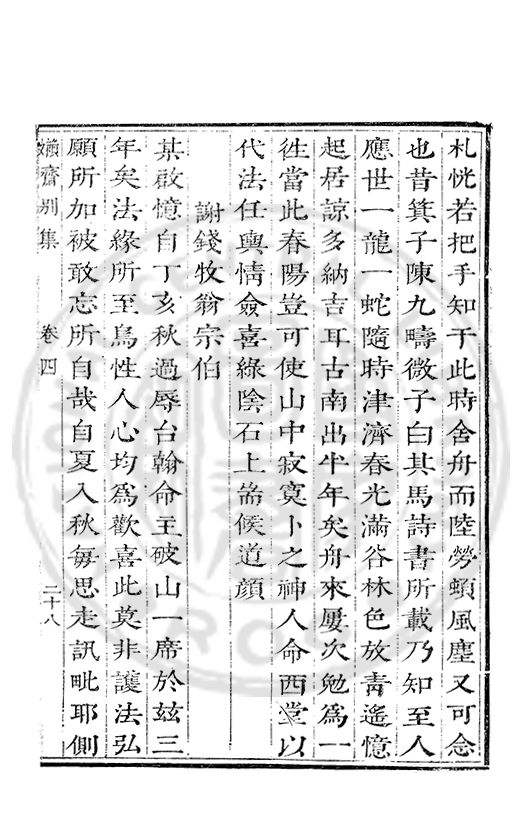 札恍若把手知于此時舍舟而陸勞頓風塵又可念
也昔箕子陳九疇微子白其馬詩書所載乃知至人
應世一龍一蛇隨時津濟春光滿谷林色放青遙憶
起居諒多納吉耳古南出半年矣舟來屢次勉爲一
徃當此春陽豈可使山中寂寞卜之神人命西堂以
代法任輿情僉喜綠陰石上耑候道顔
謝錢牧翁宗伯
某啟憶自丁亥秋過辱台翰命主破山一席於玆三
年矣法緣所至鳥性人心均爲歡喜此莫非護法弘
願所加被敢忘所自哉自夏入秋每思走訊毗耶側
嬾齋別集
卷四
二十八